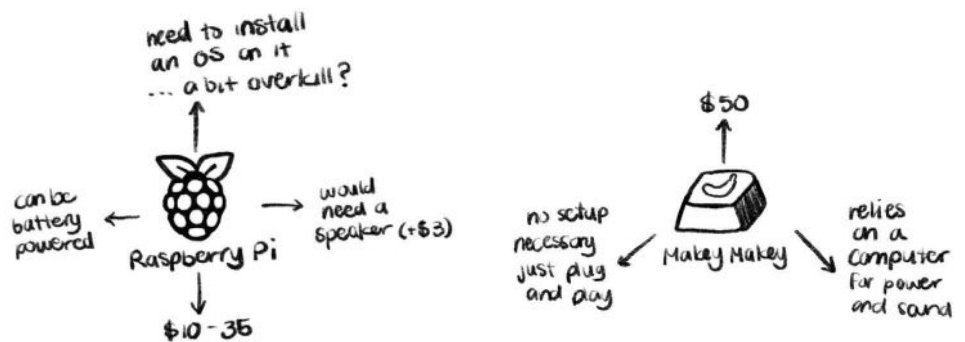 need to install
an OS on it
... a bit overkill?
can be
battery
powered
would
need a
speaker (+$3)
Raspberry Pi
$10-35
$50
no setup
necessary
just plug
and play
Makey Makey
relies
on a
computer
for power
and sound